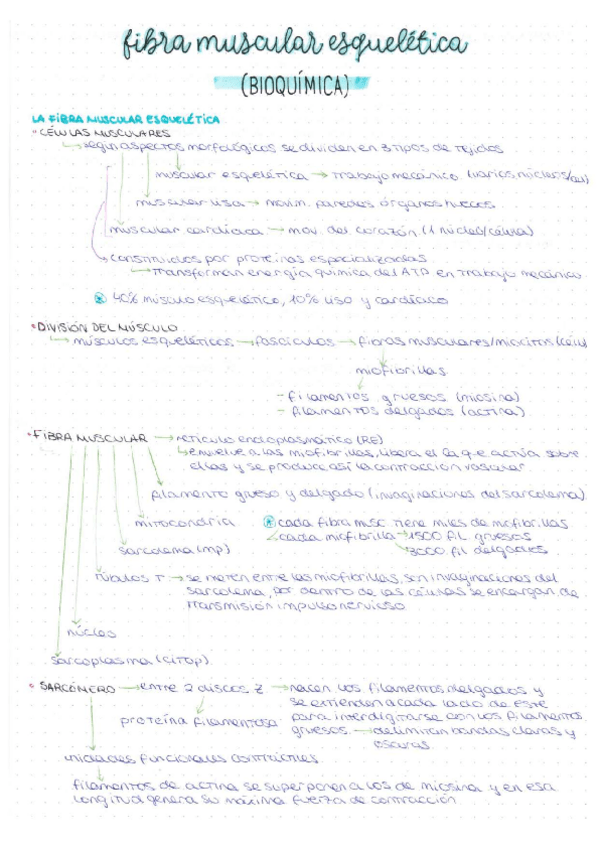 fibra muscular esquelética
(BIOQUÍMICA)
LA FIBRA MUSCULAR ESQUELÉTICA
• CÉLULAS MUSCULARES
↳ según aspectos morfológicos se dividen en 3 tipos de tejidos
muscular esquelética → trabajo mecánico (varios núcleos/cel)
muscular lisa → movim. paredes órganos huecos
muscular cardíaca → mov. del corazón (1 núcleo/célula)
↳ constituidos por proteínas especializadas
↳ transforman energía química del ATP en trabajo mecánico
40% músculo esquelético, 10% liso y cardíaco
• DIVISIÓN DEL MÚSCULO
↳ músculos esqueléticos → fascículos → fibras musculares/miocitos (célul
miofibrillas
- filamentos gruesos (miosina)
- filamentos delgados (actina)
• FIBRA MUSCULAR → retículo endoplasmático (RE)
↳ envuelve a las miofibrillas, libera el Ca que actúa sobre
ellas y se produce así la contracción vascular
filamento grueso y delgado (invaginaciones del sarcolema)
mitocondria
cada fibra msc tiene miles de miofibrillas
cada miofibrilla → 1500 fil gruesos
→ 3000 fil delgados
sarcolema (mp)
túbulos T → se meten entre las miofibrillas, son invaginaciones del
sarcolema, por dentro de las células se encargan de
transmisión impulso nervioso
núcleo
sarcoplasma (citop)
• SARCÓMERO → entre 2 discos Z → nacen los filamentos delgados y
se extienden a cada lado de este
para interdigitarse con los filamentos
gruesos → delimitan bandas claras y
oscuras
proteína filamentosa
unidades funcionales contráctiles
filamentos de actina se superponen a los de miosina y en esa
longitud genera su máxima fuerza de contracción